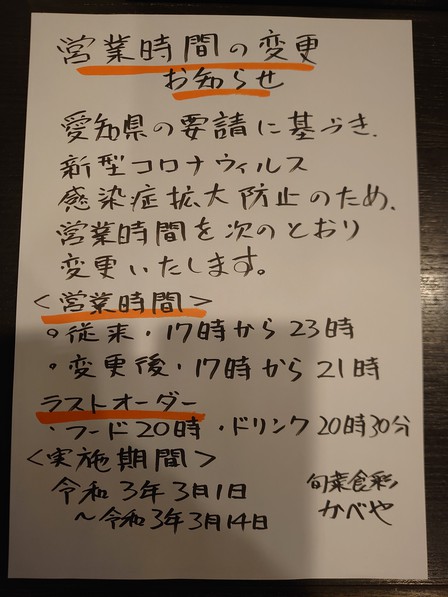 営業時間の変更
お知らせ
愛知県の要請に基づき、
新型コロナウィルス
感染症拡大防止のため、
営業時間を次のとおり
変更いたします。
<営業時間>
・従来・17時から23時
・変更後・17時から21時
ラストオーダー
・フード20時・ドリンク20時30分
<実施期間>
令和3年3月1日
～令和3年3月14日
旬菜食彩
かべや